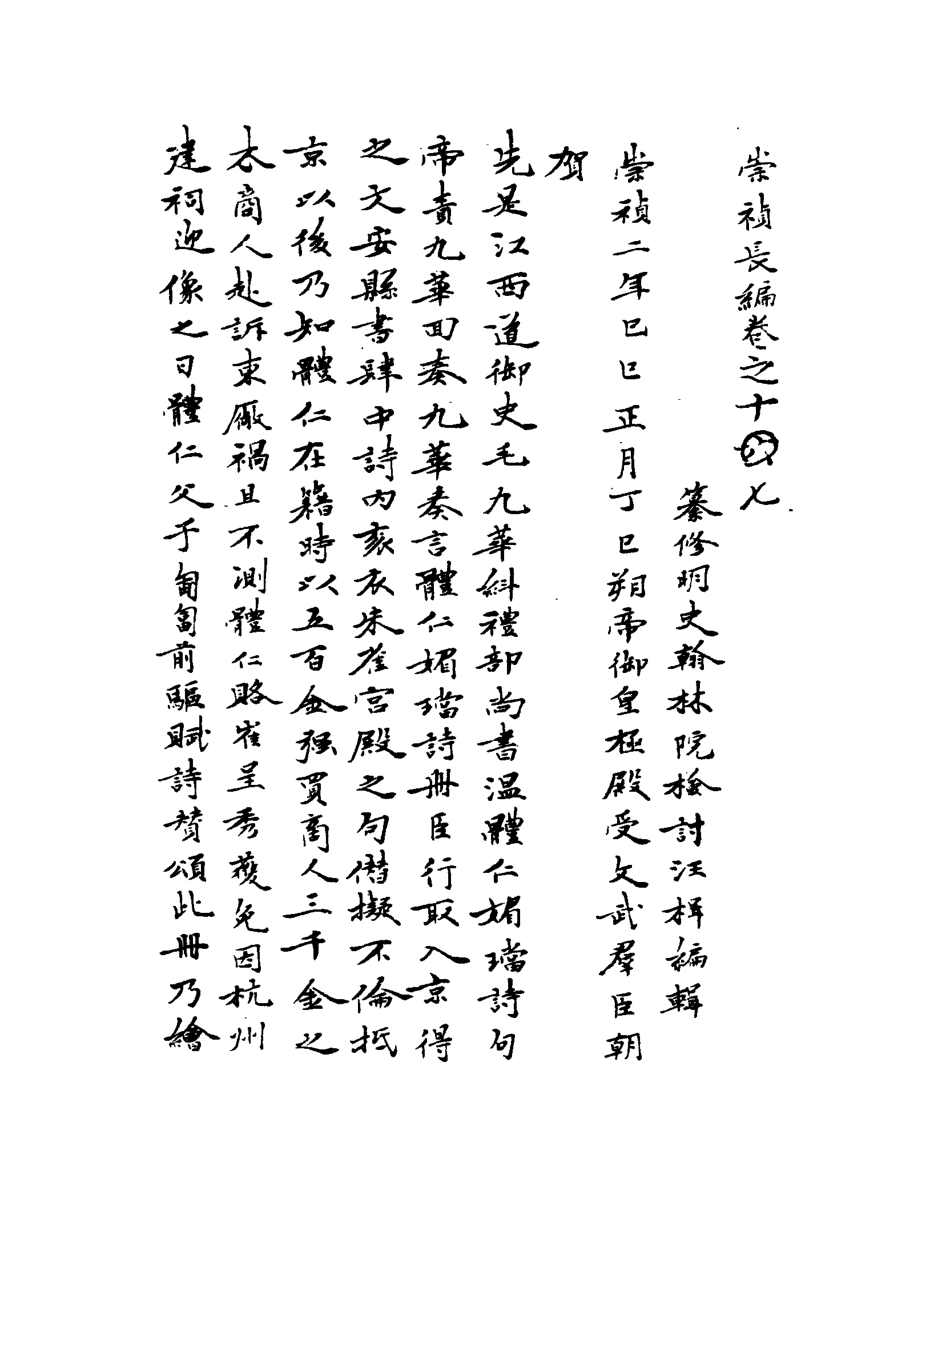 崇禎長編卷之十六七
纂修明史翰林院檢討汪楫編輯
崇禎二年己巳正月丁巳朔帝御皇極殿受文武羣臣朝
賀
先是江西道御史毛九華糾禮部尚書温體仁媚璫詩句
帝責九華回奏九華奏言體仁媚璫詩冊臣行取入京得
之文安縣書肆中詩內袞衣朱雀宫殿之句僭擬不倫抵
京以後乃知體仁在籍時以五百金强買商人三千金之
木商人赴訴東廠禍且不測體仁賂崔呈秀獲免因杭州
建祠迎像之日體仁父子匍匐前驅賦詩賛頌此冊乃繪